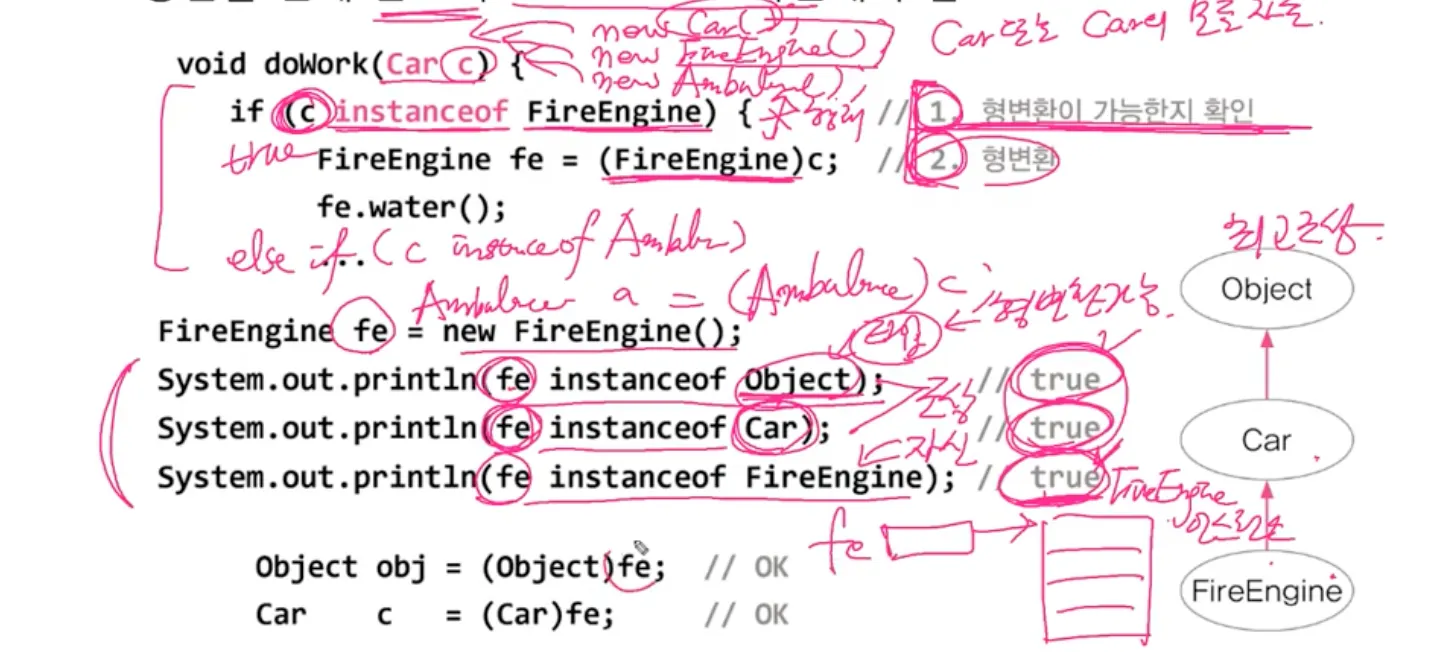 new Car();
Car 또는 Car의
void doWork(Car c) {
new FireEngine()
new Ambulance()
if (c instanceof FireEngine) { // 1. 형변환이 가능한지 확인
true FireEngine fe = (FireEngine)c; // 2. 형변환
fe.water();
else if (c instanceof
최고조상
Object
a = (Ambulance) c
형변환가능
FireEngine fe = new FireEngine();
System.out.println(fe instanceof Object); // true
조상
System.out.println(fe instanceof Car); // true
Car
자신
System.out.println(fe instanceof FireEngine); // true
FireEngine
fe
Object obj = (Object)fe; // OK
FireEngine
Car c = (Car)fe; // OK